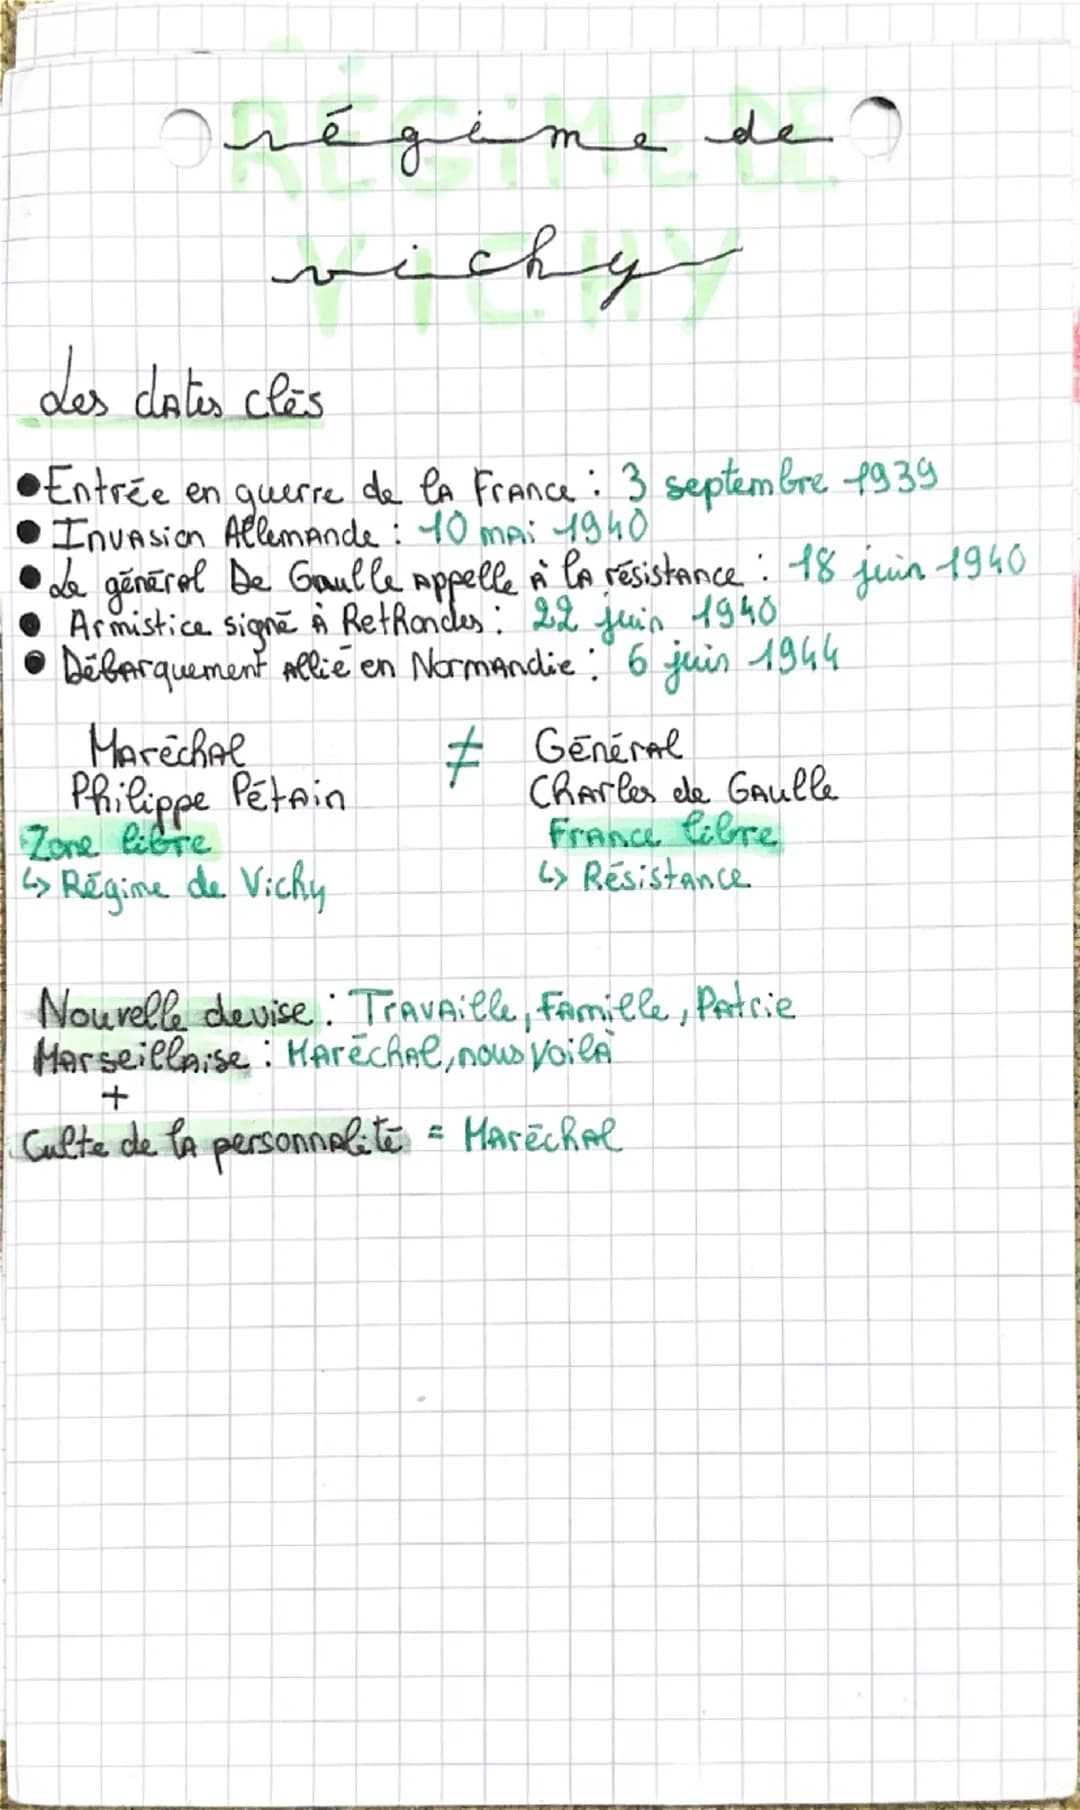 RÉGIME DE
régime de
VICHY
vichy
Les dates clés
● Entrée en guerre de la France : 3 septembre 1939
● Invasion Allemande : 10 mai 1940
● Le général De Gaulle appelle à la résistance : 18 juin 1940
● Armistice signé à Rethondes : 22 juin 1940
● Débarquement allié en Normandie : 6 juin 1944
Maréchal ≠ Général
Philippe Pétain Charles de Gaulle
Zone libre France libre
↳ Régime de Vichy ↳ Résistance
Nouvelle devise : Travaille, Famille, Patrie
Marseillaise : Maréchal, nous voilà
+
Culte de la personnalité = Maréchal